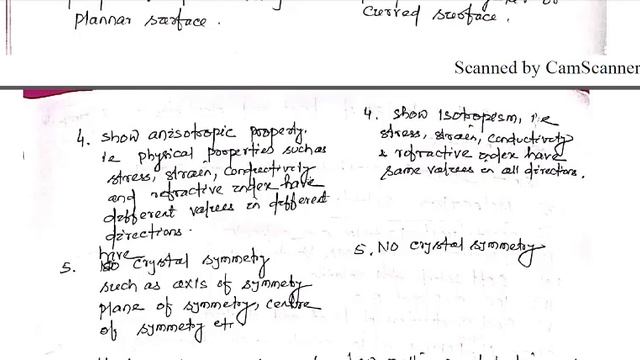 plannar surface.
curved surface.
Scanned by CamScanner
4. show anisotropic property.
ie physical properties such as
stress, strain, conductively
and refractive index have
different values in different
directions.
have
5. crystal symmetry
such as axis of symmetry
plane of symmetry, centre
of symmetry etc
4. show Isotropism, i.e
stress, strain, conductivity
& refractive index have
same values in all directions.
5. No crystal symmetry